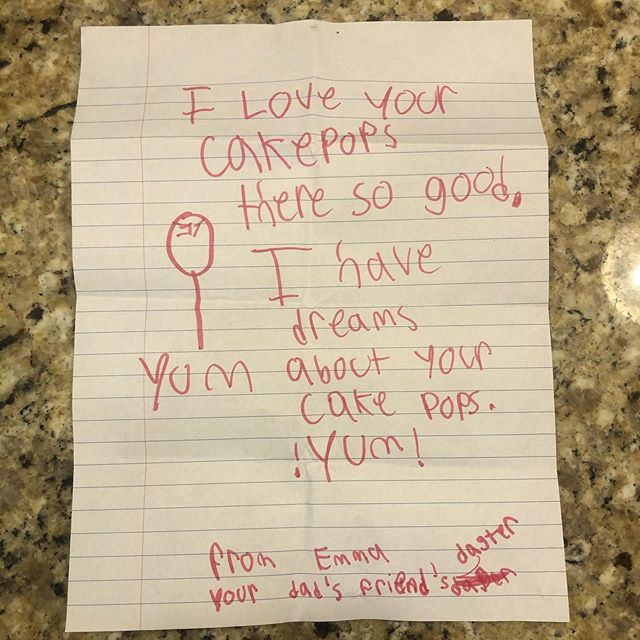 I Love your
cakepops
there so good.
I have
dreams
Yum about your
cake pops.
!Yum!
from Emma
your dad's friend's daster